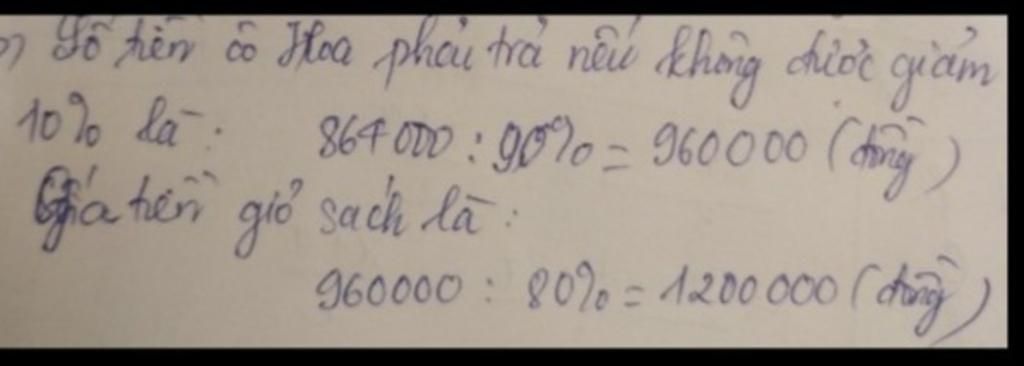 b) Số tiền cô Hoa phải trả nếu không được giảm
10% là: 864000 : 90% = 960000 (đồng)
Giá tiền giỏ sách là:
960000 : 80% = 1200000 (đồng)